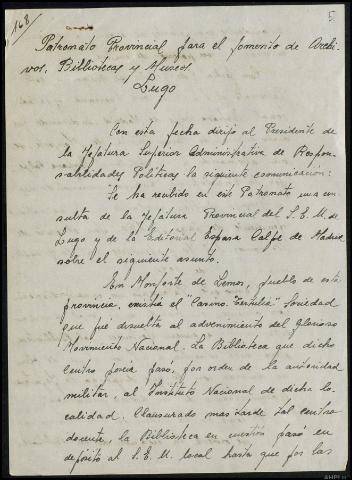 168
5
Patronato Provincial para el fomento de Archi-
vos, Bibliotecas y Museos.
Lugo
Con esta fecha dirijo al Presidente de
la Jefatura Superior Administrativa de Respon-
sabilidades Políticas la siguiente comunicación:
Se ha recibido en este Patronato una con
sulta de la Jefatura Provincial del S.E.M. de
Lugo y de la Editorial Espasa Calpe de Madrid
sobre el siguiente asunto.
En Monforte de Lemos, pueblo de esta
provincia, existía el "Casino-Tertulia" Sociedad
que fué disuelta al advenimiento del Glorioso
Movimiento Nacional. La Biblioteca que dicho
Centro poseía pasó, por orden de la autoridad
militar, al Instituto Nacional de dicha lo-
calidad. Clausurado mas tarde tal centro
docente, la Biblioteca en cuestión pasó en
depósito al S.E.M. local hasta que por las